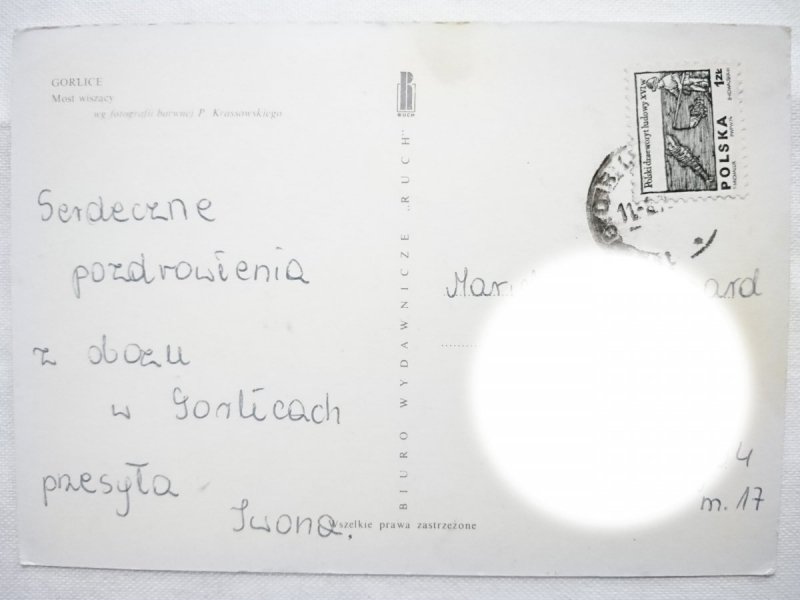 GORLICE
Most wiszący
wg fotografii barwnej P. Krassowskiego
Serdeczne
pozdrowienia
z obozu
w Gorlicach
przesyła
Iwona.
BIURO WYDAWNICZE „RUCH"
RUCH
Wszelkie prawa zastrzeżone
Polski drzeworyt ludowy XVI w
POLSKA
1ZŁ
ard
4
m. 17